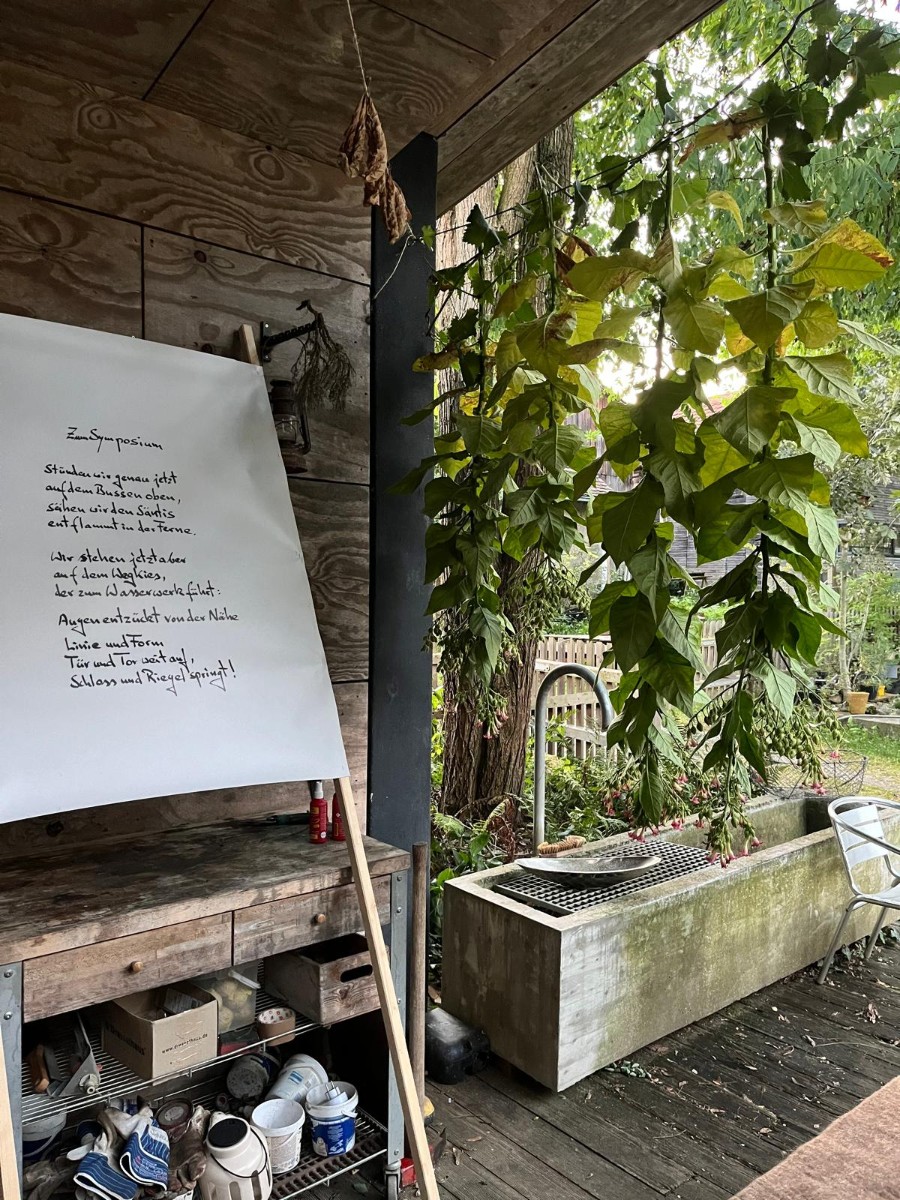 Zum Symposium
Stünden wir genau jetzt
auf dem Bussen oben,
sähen wir den Säntis
entflammt in der Ferne.
Wir stehen jetzt aber
auf dem Wegkies,
der zum Wasserwerk führt:
Augen entzückt von der Nähe
Linie und Form
Tür und Tor weit auf,
Schloss und Riegel springt!